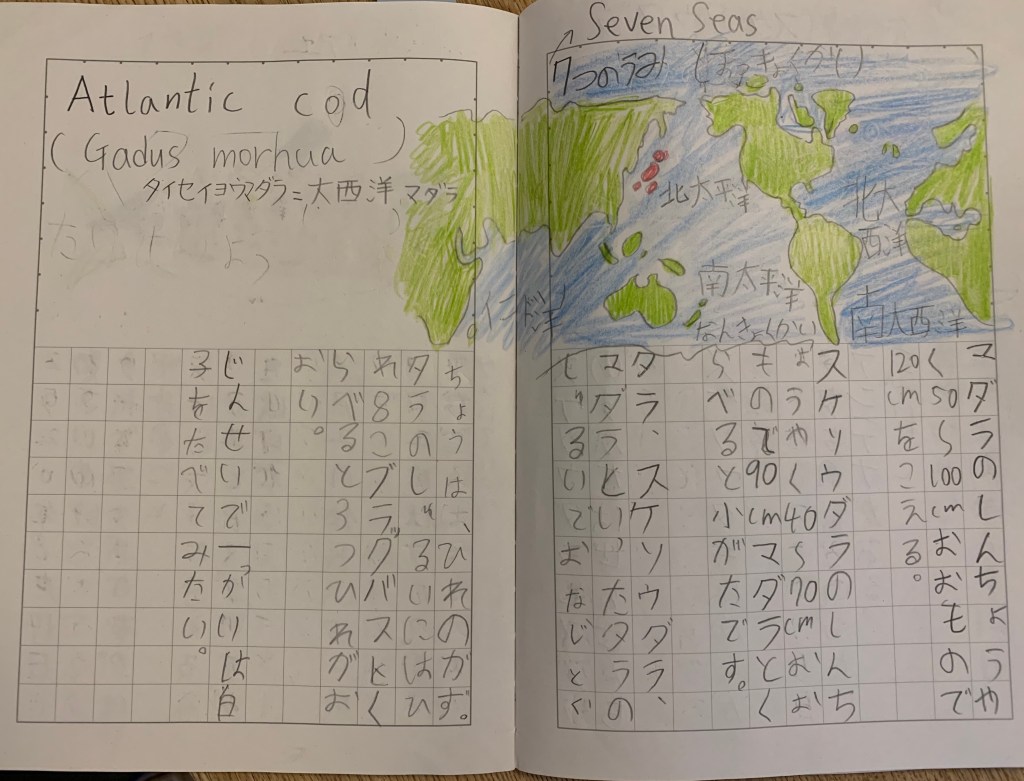 Seven Seas
7つのうみ (ほっきょくかい)
北太平洋
北大
西洋
南太平洋
なんきょくかい
南大西洋
マダラのしんちょうや
く50〜100cmおおもので
120cmをこえる。
スケソウダラのしんち
ょうやく40〜70cmおお
もので90cmマダラとく
らべると小がたです。
タラ、スケソウダラ、
マダラといったタラの
しゅるいでおなじとく
Atlantic cod
(Gadus morhua)
タイセイヨウマダラ=大西洋マダラ
インド洋
ちょうは、ひれのかず。
タラのしゅるいにはひ
れ8こブラックバスとく
らべると3つひれがお
おい。
じんせいで一っかいは白
子をたべてみたい。